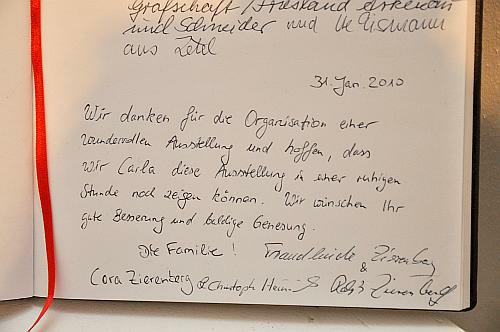 Grafschaft / Friesland
und Schneider und
aus Zetel
31. Jan. 2010
Wir danken für die Organisation einer
wundervollen Ausstellung und hoffen, dass
wir Carla diese Ausstellung in einer ruhigen
Stunde noch zeigen können. Wir wünschen Ihr
gute Besserung und baldige Genesung.
Die Familie!
& 
Cora Zierenberg & Christoph